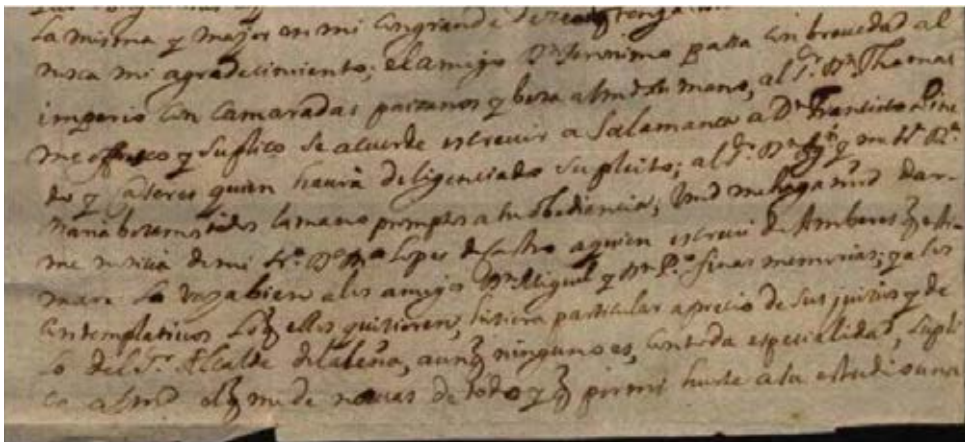 la misma y mayor en mi con grande deseo q tenga
nosca mi agradecimiento; el amigo Dn Jeronimo passa con brevedad al
imperio con camaradas paizanos y beza a Vmd su mano, al Sr. Dn Thomas
me offresco y suplico se acuerde escrevir a Salamanca a Dn Francisco
do y Caseres quien havrá deligenciado su pleito; al Sr. Dn y mi Sra Da
Maria bezamos todos la mano promptos a su obediencia, Vmd me haga mrd dar-
me noticia de mi Sr. Dn Lopes de Castro a quien escrevi de Amberes q esti-
mare lo vaya bien a los amigos Dn Miguel y Dn Po finas memorias; y a los
contemplativos lo q ellos quisieren, hisiera particular aprecio de sus juisios y de
lo del Sr. Alcalde de la leña, aunq ninguno es, con toda especialidad, supli
co a Vmd el q me de nuevas de todo y q por mi hurte a su estudio una